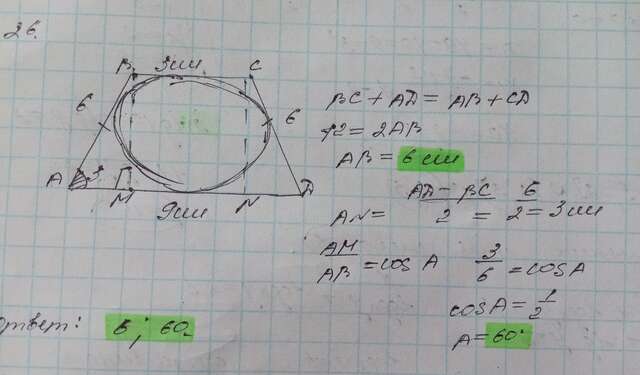 26.
B 3см C
6 6
A 3 M N D
9см
BC + AD = AB + CD
12 = 2AB
AB = 6 см
AN = AD - BC / 2 = 6 / 2 = 3 см
AM / AB = cos A 3 / 6 = cos A
cos A = 1 / 2
A = 60°
ответ: 6; 60